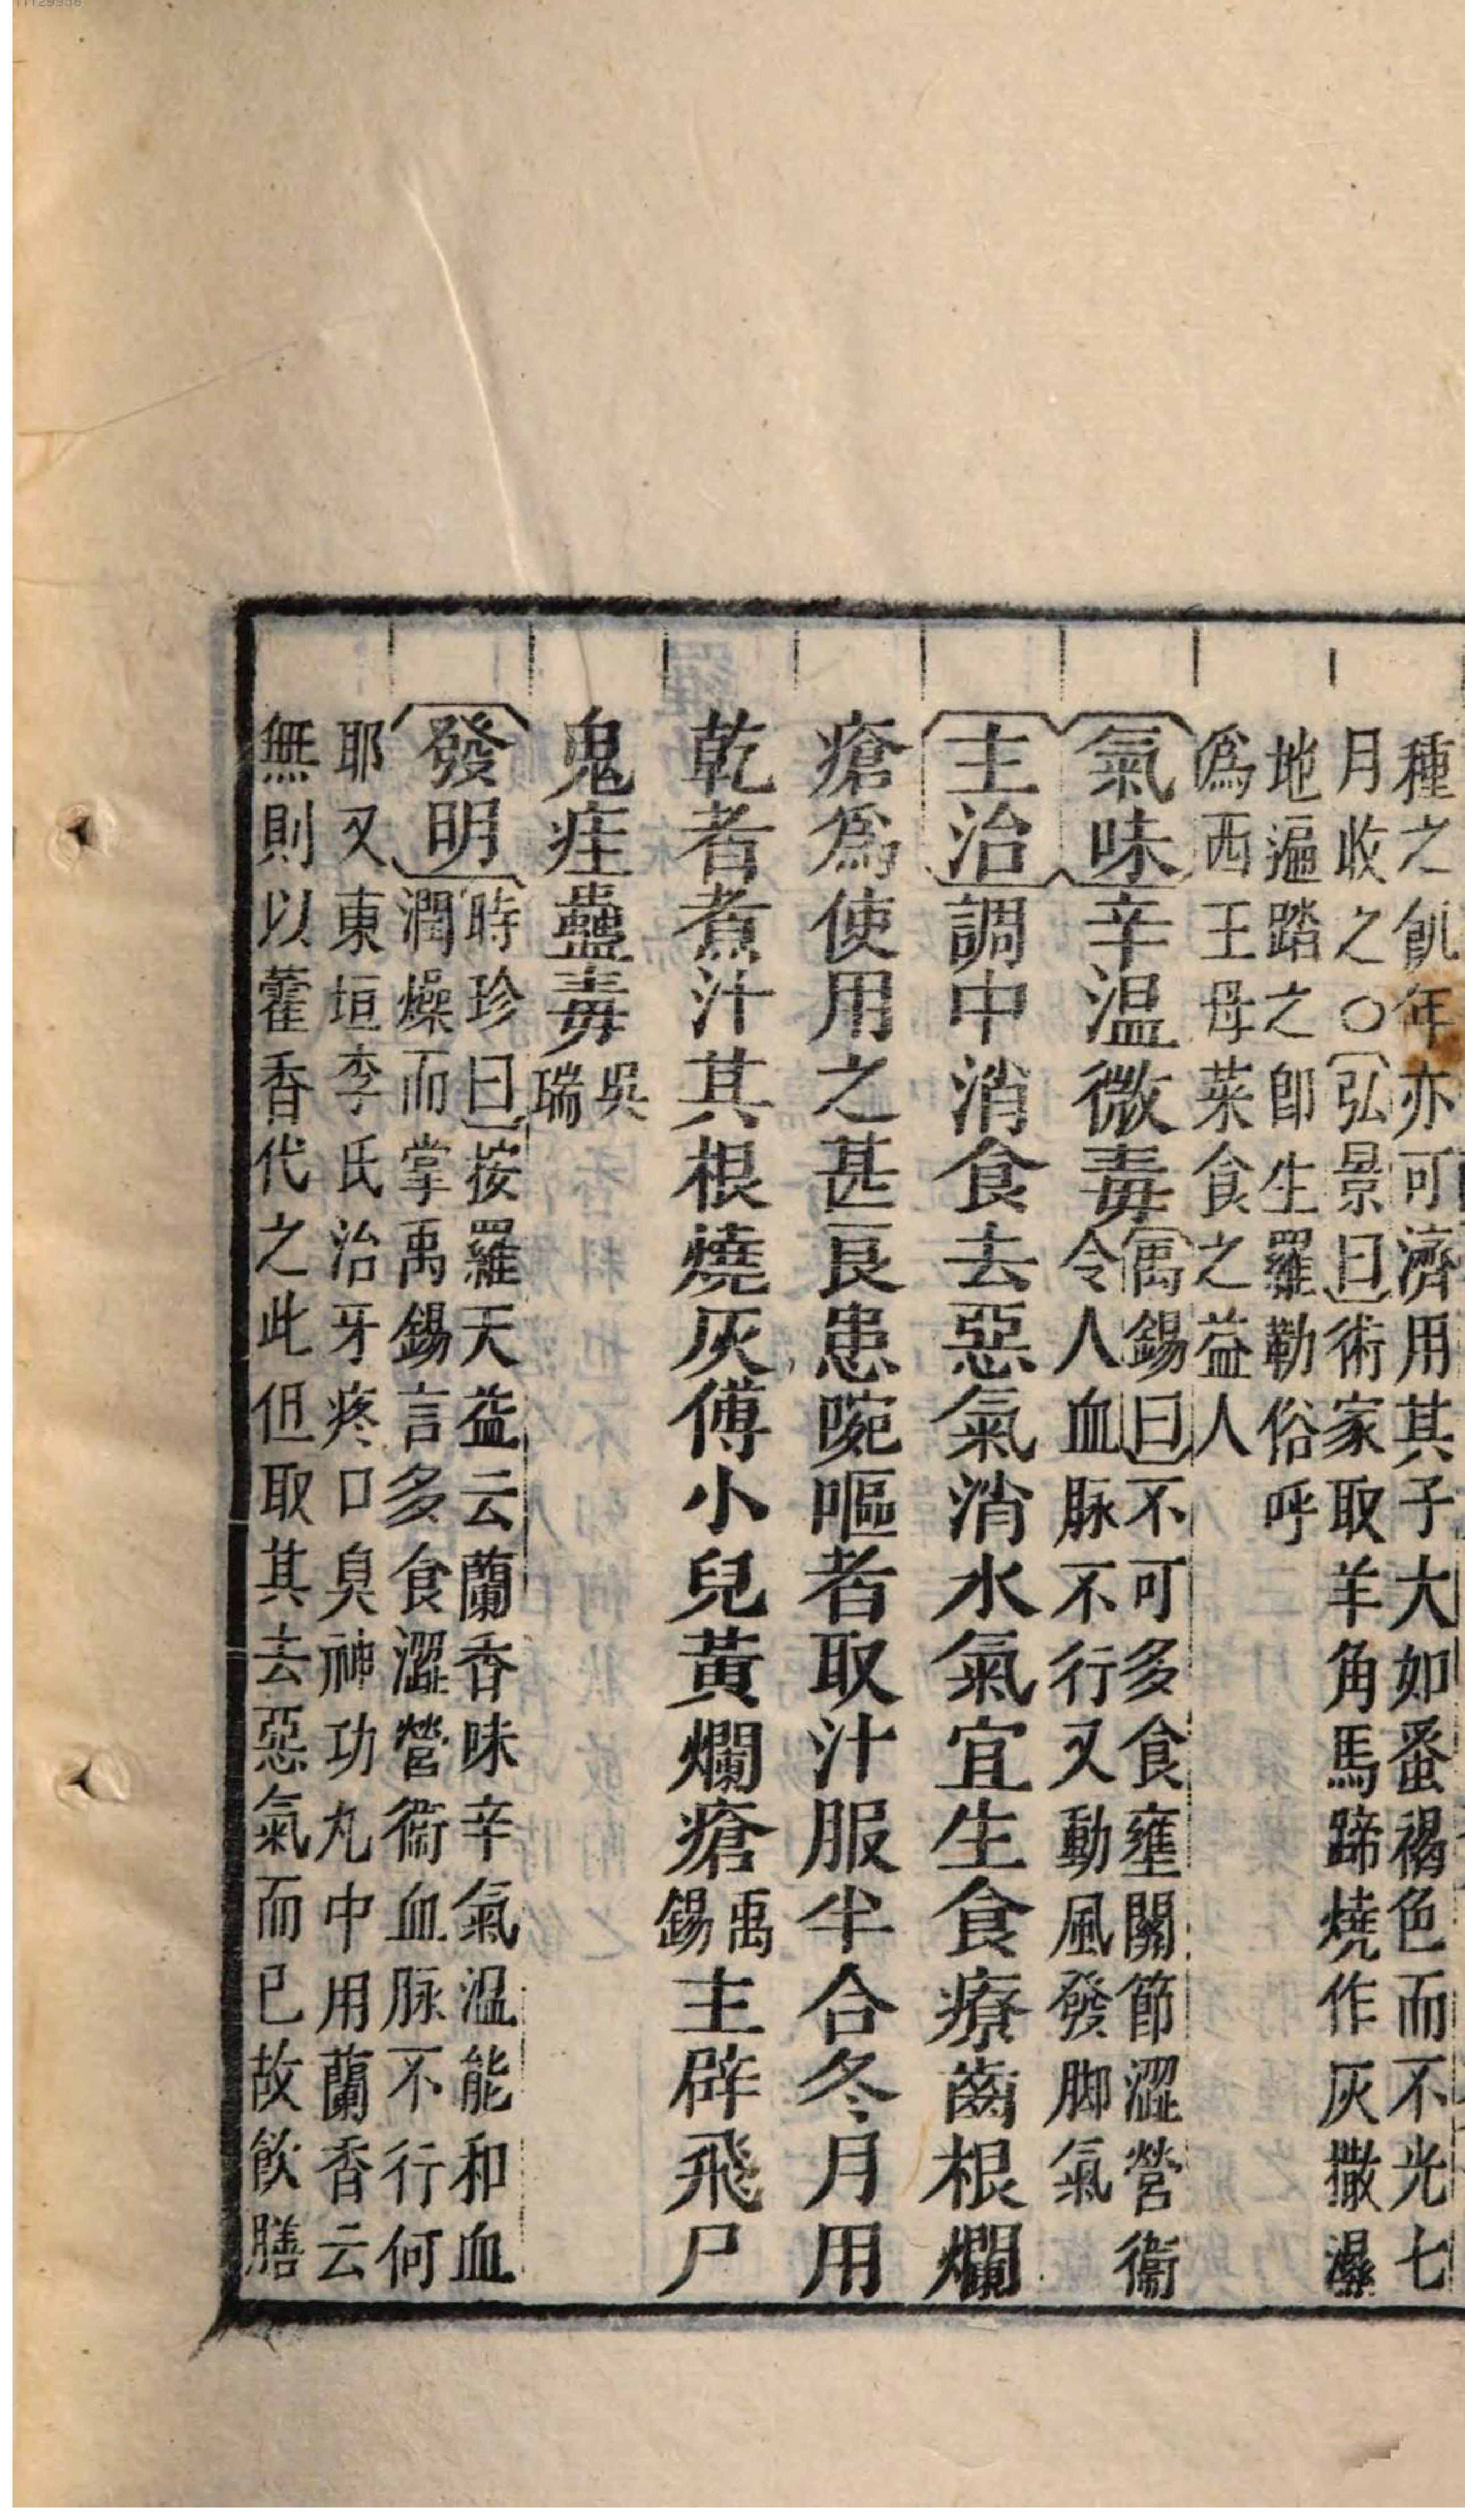 種之飢年亦可濟用其子大如蚤褐色而不光七
月收之〇弘景曰術家取羊角馬蹄燒作灰撒濕
地遍踏之卽生羅勒俗呼
爲西王母菜食之益人
氣味辛溫微毒禹錫曰不可多食壅關節澀營衞
令人血脉不行又動風發脚氣
主治調中消食去惡氣消水氣宜生食療齒根爛
瘡爲使用之甚良患啘嘔者取汁服半合冬月用
乾者煮汁其根燒灰傅小兒黃爛瘡禹錫主辟飛尸
鬼疰蠱毒吳瑞
發明時珍曰按羅天益云蘭香味辛氣溫能和血
潤燥而掌禹錫言多食澀營衞血脉不行何
耶又東垣李氏治牙疼口臭神功丸中用蘭香云
無則以藿香代之此但取其去惡氣而已故飲膳